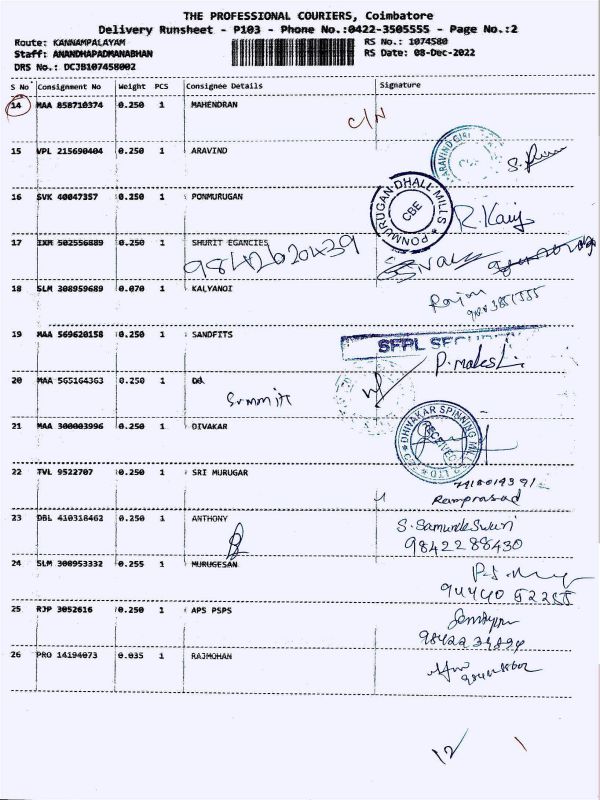 THE PROFESSIONAL COURIERS, Coimbatore
Delivery Runsheet - P103 - Phone No.:0422-3505555 - Page No.:2
Route: KANNAMPALAYAM RS No.: 1074580
Staff: ANANDHAPADMANABHAN RS Date: 08-Dec-2022
DRS No.: DCJB107458002
S No Consignment No Weight PCS Consignee Details Signature
14 MAA 858710374 0.250 1 MAHENDRAN C/N
15 VPL 215690404 0.250 1 ARAVIND
16 SVK 40047357 0.250 1 PONMURUGAN R. Kanj
PONMURUGAN DHALL MILLS CBE
17 IXM 502556889 0.250 1 SHURIT EGANCIES
9842620439
18 SLM 308959689 0.070 1 KALYANOI
Rajan
19 MAA 569620158 0.250 1 SANDFITS
SFPL
P. mahesh
20 MAA 565164363 0.250 1 Dd
21 MAA 300003996 0.250 1 DIVAKAR
DHIVAKAR SPINNING MILLS RECEIVED
22 TVL 9522707 0.250 1 SRI MURUGAR
Ramprasad
23 DBL 410318462 0.250 1 ANTHONY
9842288430
24 SLM 308953332 0.255 1 MURUGESAN
94440 52255
25 RJP 3052616 0.250 1 APS PSPS
26 PRO 14194073 0.035 1 RAJMOHAN
12 1